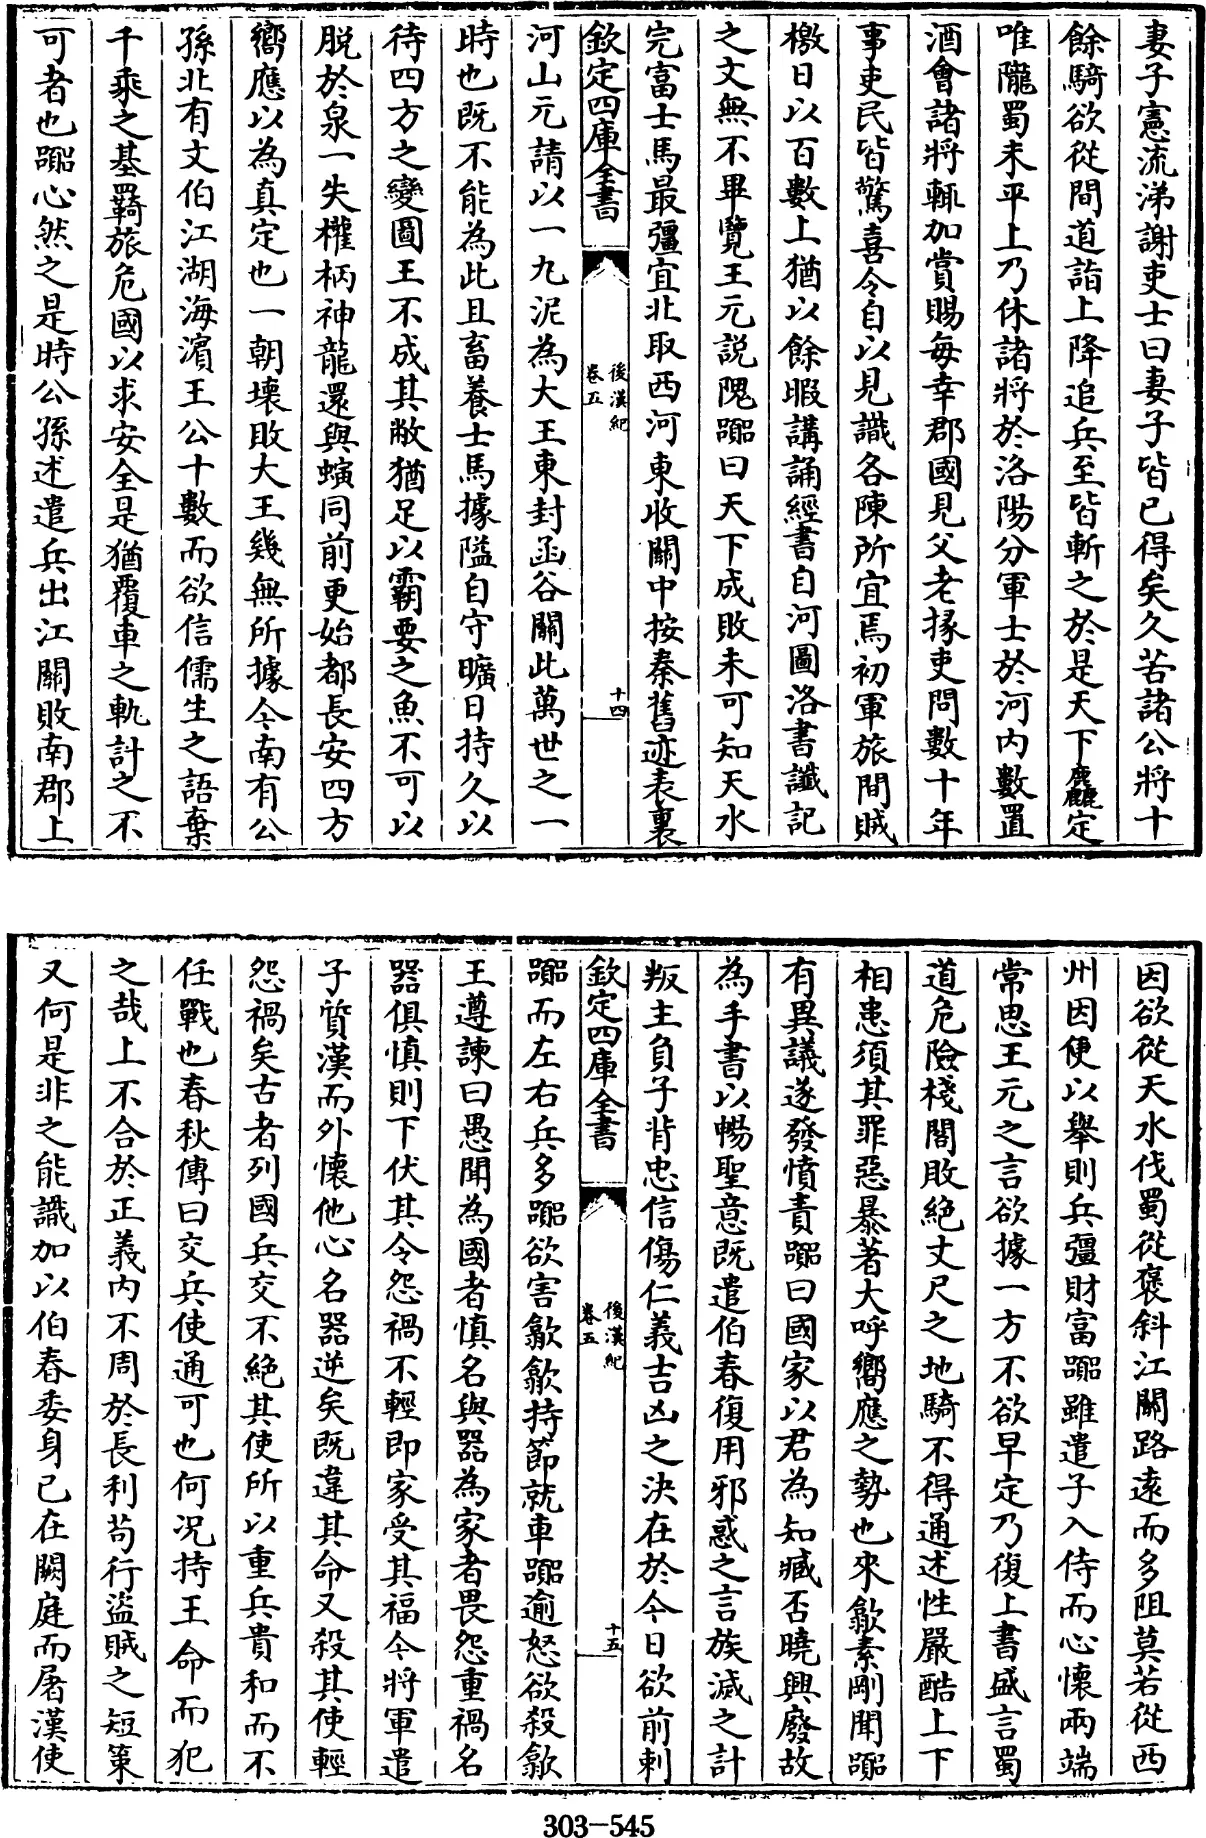 妻子憲流涕謝吏士曰妻子皆已得矣久苦諸公將十
餘騎欲從間道詣上降追兵至皆斬之於是天下麤定
唯隴蜀未平上乃休諸將於洛陽分軍士於河内數置
酒會諸將輒加賞賜每幸郡國見父老掾吏問數十年
事吏民皆驚喜令自以見識各陳所宜焉初軍旅間賊
檄日以百數上猶以餘暇講誦經書自河圖洛書讖記
之文無不畢覽王元説隗囂曰天下成敗未可知天水
完富士馬最彊宜北取西河東收關中按秦舊迹表裏
欽定四庫全書
後漢紀
卷五
十四
河山元請以一九泥為大王東封函谷關此萬世之一
時也既不能為此且畜養士馬據隘自守曠日持久以
待四方之變圖王不成其敝猶足以霸要之魚不可以
脱於泉一失權柄神龍還與螾同前更始都長安四方
嚮應以為真定也一朝壊敗大王幾無所據今南有公
孫北有文伯江湖海濵王公十數而欲信儒生之語棄
千乘之基羇旅危國以求安全是猶覆車之軌計之不
可者也囂心然之是時公孫述遣兵出江關敗南郡上
因欲從天水伐蜀從褒斜江關路遠而多阻莫若從西
州因便以舉則兵彊財富囂雖遣子入侍而心懷兩端
常思王元之言欲據一方不欲早定乃復上書盛言蜀
道危險棧閣敗絶丈尺之地騎不得通述性嚴酷上下
相患須其罪惡暴著大呼嚮應之勢也來歙素剛聞囂
有異議遂發憤責囂曰國家以君為知臧否曉興廢故
為手書以暢聖意既遣伯春復用邪惑之言族滅之計
叛主負子背忠信傷仁義吉凶之決在於今日欲前刺
欽定四庫全書
後漢紀
卷五
十五
囂而左右兵多囂欲害歙歙持節就車囂逾怒欲殺歙
王遵諫曰愚聞為國者慎名與器為家者畏怨重禍名
器俱慎則下伏其令怨禍不輕即家受其福今將軍遣
子質漢而外懷他心名器逆矣既違其命又殺其使輕
怨禍矣古者列國兵交不絶其使所以重兵貴和而不
任戰也春秋傳曰交兵使通可也何况持王命而犯
之哉上不合於正義内不周於長利苟行盜賊之短策
又何是非之能識加以伯春委身已在闕庭而屠漢使
303-545